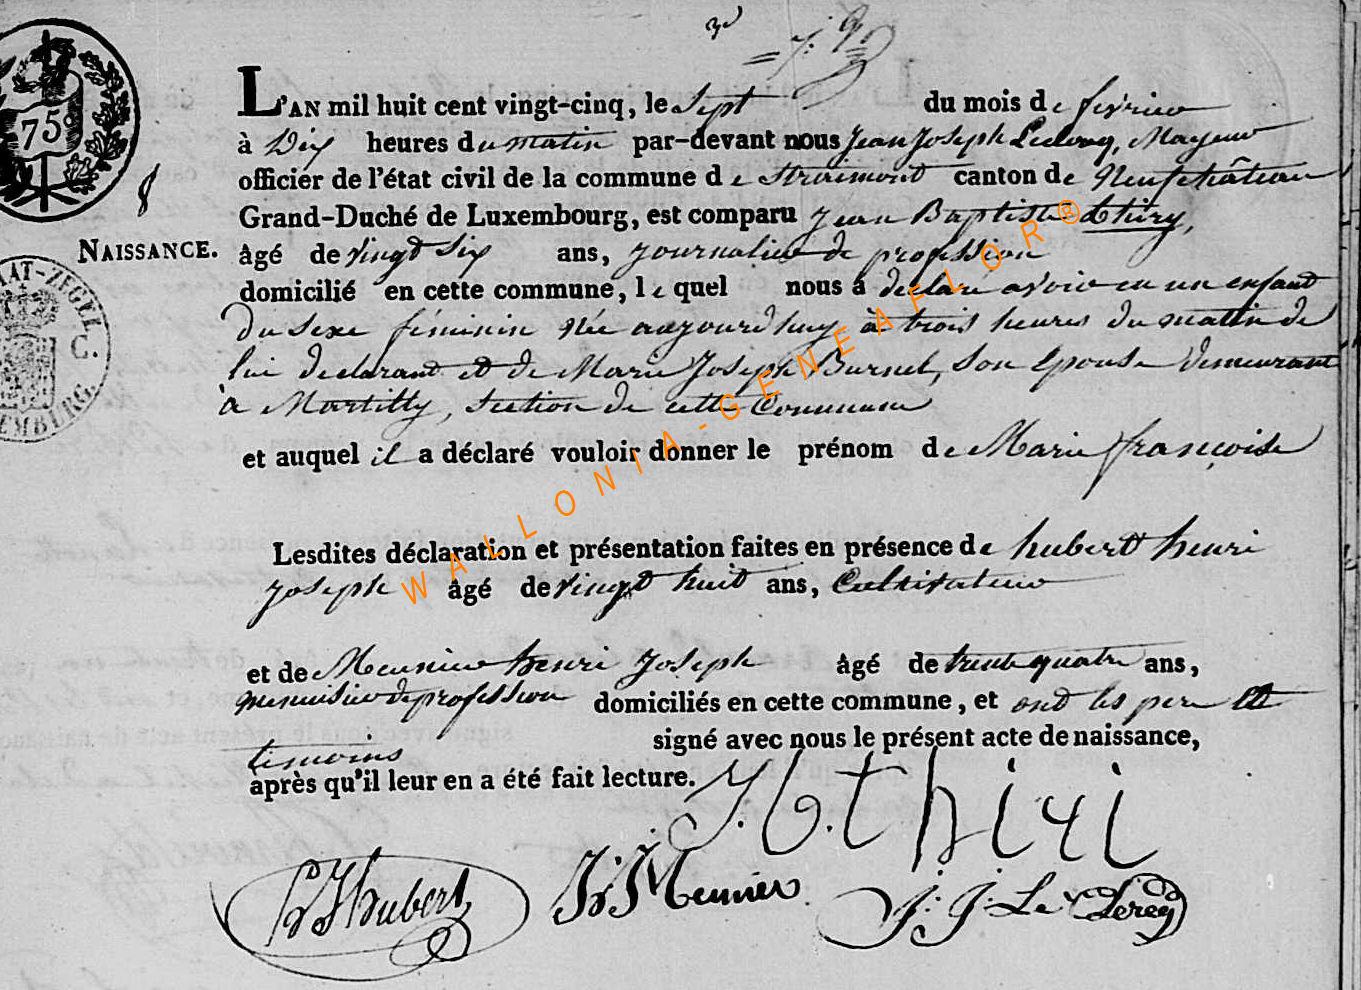 L'AN mil huit cent vingt-cinq, le Sept du mois de fevrier
75c
à Dix heures du matin par-devant nous Jean Joseph Leclerq, Mayeur
officier de l'état civil de la commune de Straimont canton de Neufchâteau
8
Grand-Duché de Luxembourg, est comparu Jean Baptiste thiry,
NAISSANCE. âgé de vingt Six ans, journalier de profession
domicilié en cette commune, le quel nous a déclaré avoir eu un enfant
Du Sexe féminin Née aujourd'huy à trois heures du matin de
lui declarant et de Marie Joseph Burnet, Son Epouse demeurant
à Martilly, Section de cette Commune
et auquel il a déclaré vouloir donner le prénom de Marie françoise
Lesdites déclaration et présentation faites en présence de hubert henri
Joseph âgé de vingt huit ans, Cultivateur
et de Meunier henri Joseph âgé de trente quatre ans,
menuisier de profession domiciliés en cette commune, et ont les pere et
temoins signé avec nous le présent acte de naissance,
après qu'il leur en a été fait lecture.
J. b. thiri
h J hubert
h J Meunier
J: J: Le Clereq
WALLONIA-GENEAFLOR®